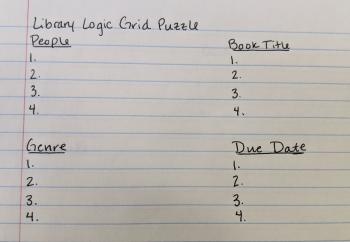 Library Logic Grid Puzzle
People
1.
2.
3.
4.
Book Title
1.
2.
3.
4.
Genre
1.
2.
3.
4.
Due Date
1.
2.
3.
4.